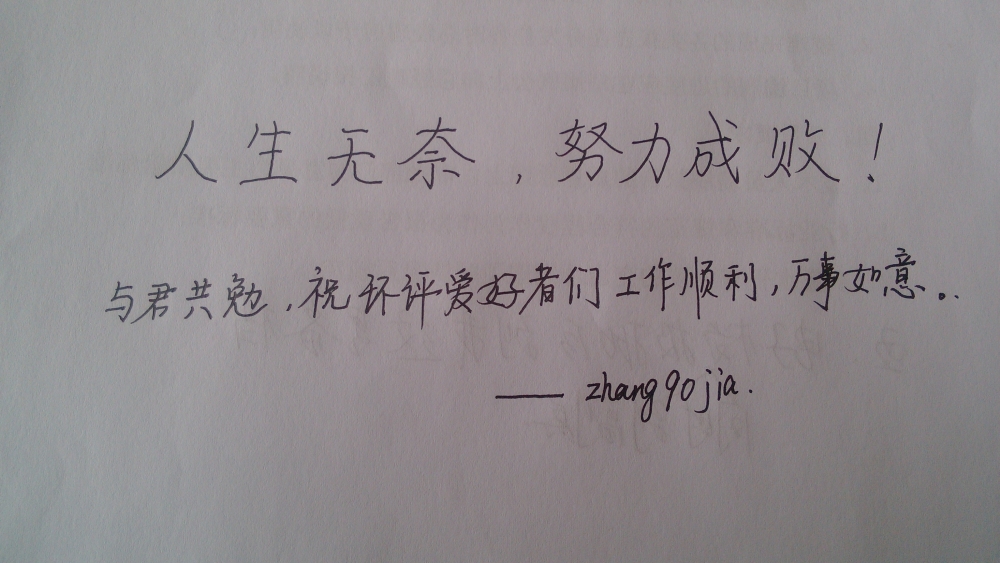 人生无奈,努力成败!
与君共勉,祝环评爱好者们工作顺利,万事如意...
—— zhang90jia.